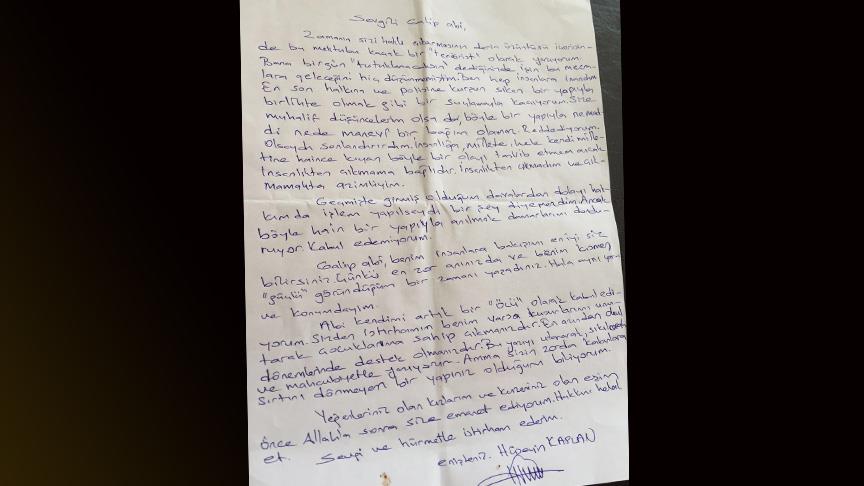 Sevgili Galip abi,
Zamanın sizi haklı çıkarmasının derin üzüntüsü içerisin-
de bu mektubu kaçak bir "terörist" olarak yazıyorum.
Bana birgün "tutuklanacaksın" dediğinizde işin bu mecra-
lara geleceğini hiç düşünmemiştim. Ben hep insanlara inandım
En son halkına ve polisine kurşun sıkan bir yapıyla
birlikte olmak gibi bir suçlamayla kaçıyorum. Size
muhalif düşüncelerim olsa da, böyle bir yapıyla ne mad-
di nede manevi bir bağım olamaz. Reddediyorum.
Olsaydı sonlandırırdım. İnsanlığa, millete, hele kendi mille-
tine haince kıyan böyle bir olayı takbih etmem ancak
İnsanlıktan çıkmama bağlıdır. İnsanlıktan çıkmadım ve çık-
mamakta azimliyim.
Geçmişte girmiş olduğum davalardan dolayı hak-
kımda işlem yapılsaydı bir şey diyemezdim. Ancak
böyle hain bir yapıyla anılmak damarlarımı dondu-
ruyor. Kabul edemiyorum.
Galip abi, benim insanlara bakışımı en iyi siz
bilirsiniz. Çünkü en zor anınızda ve benim kısmen
"güçlü" göründüğüm bir zamanı yaşadınız. Hala aynı
ve konumdayım.
Abi kendimi artık bir "ölü" olarak kabul edi-
yorum. Sizden istirhamım benim varsa kusurlarımı unu-
tarak çocuklarıma sahip çıkmanızdır. En azından okul
dönemlerinde destek olmanızdır. Bu yazıyı utanarak, sıkılarak
ve mahcubiyetle yazıyorum. Amma sizin zorda kalanlara
sırtını dönmeyen bir yapınız olduğunu biliyorum.
Yeğenleriniz olan kızlarım ve kuzeniniz olan eşim
önce Allah'a sonra size emanet ediyorum. Hakkını helal
et. Sevgi ve hürmetle istirham ederim.
enişteniz. Hüseyin KAPLAN